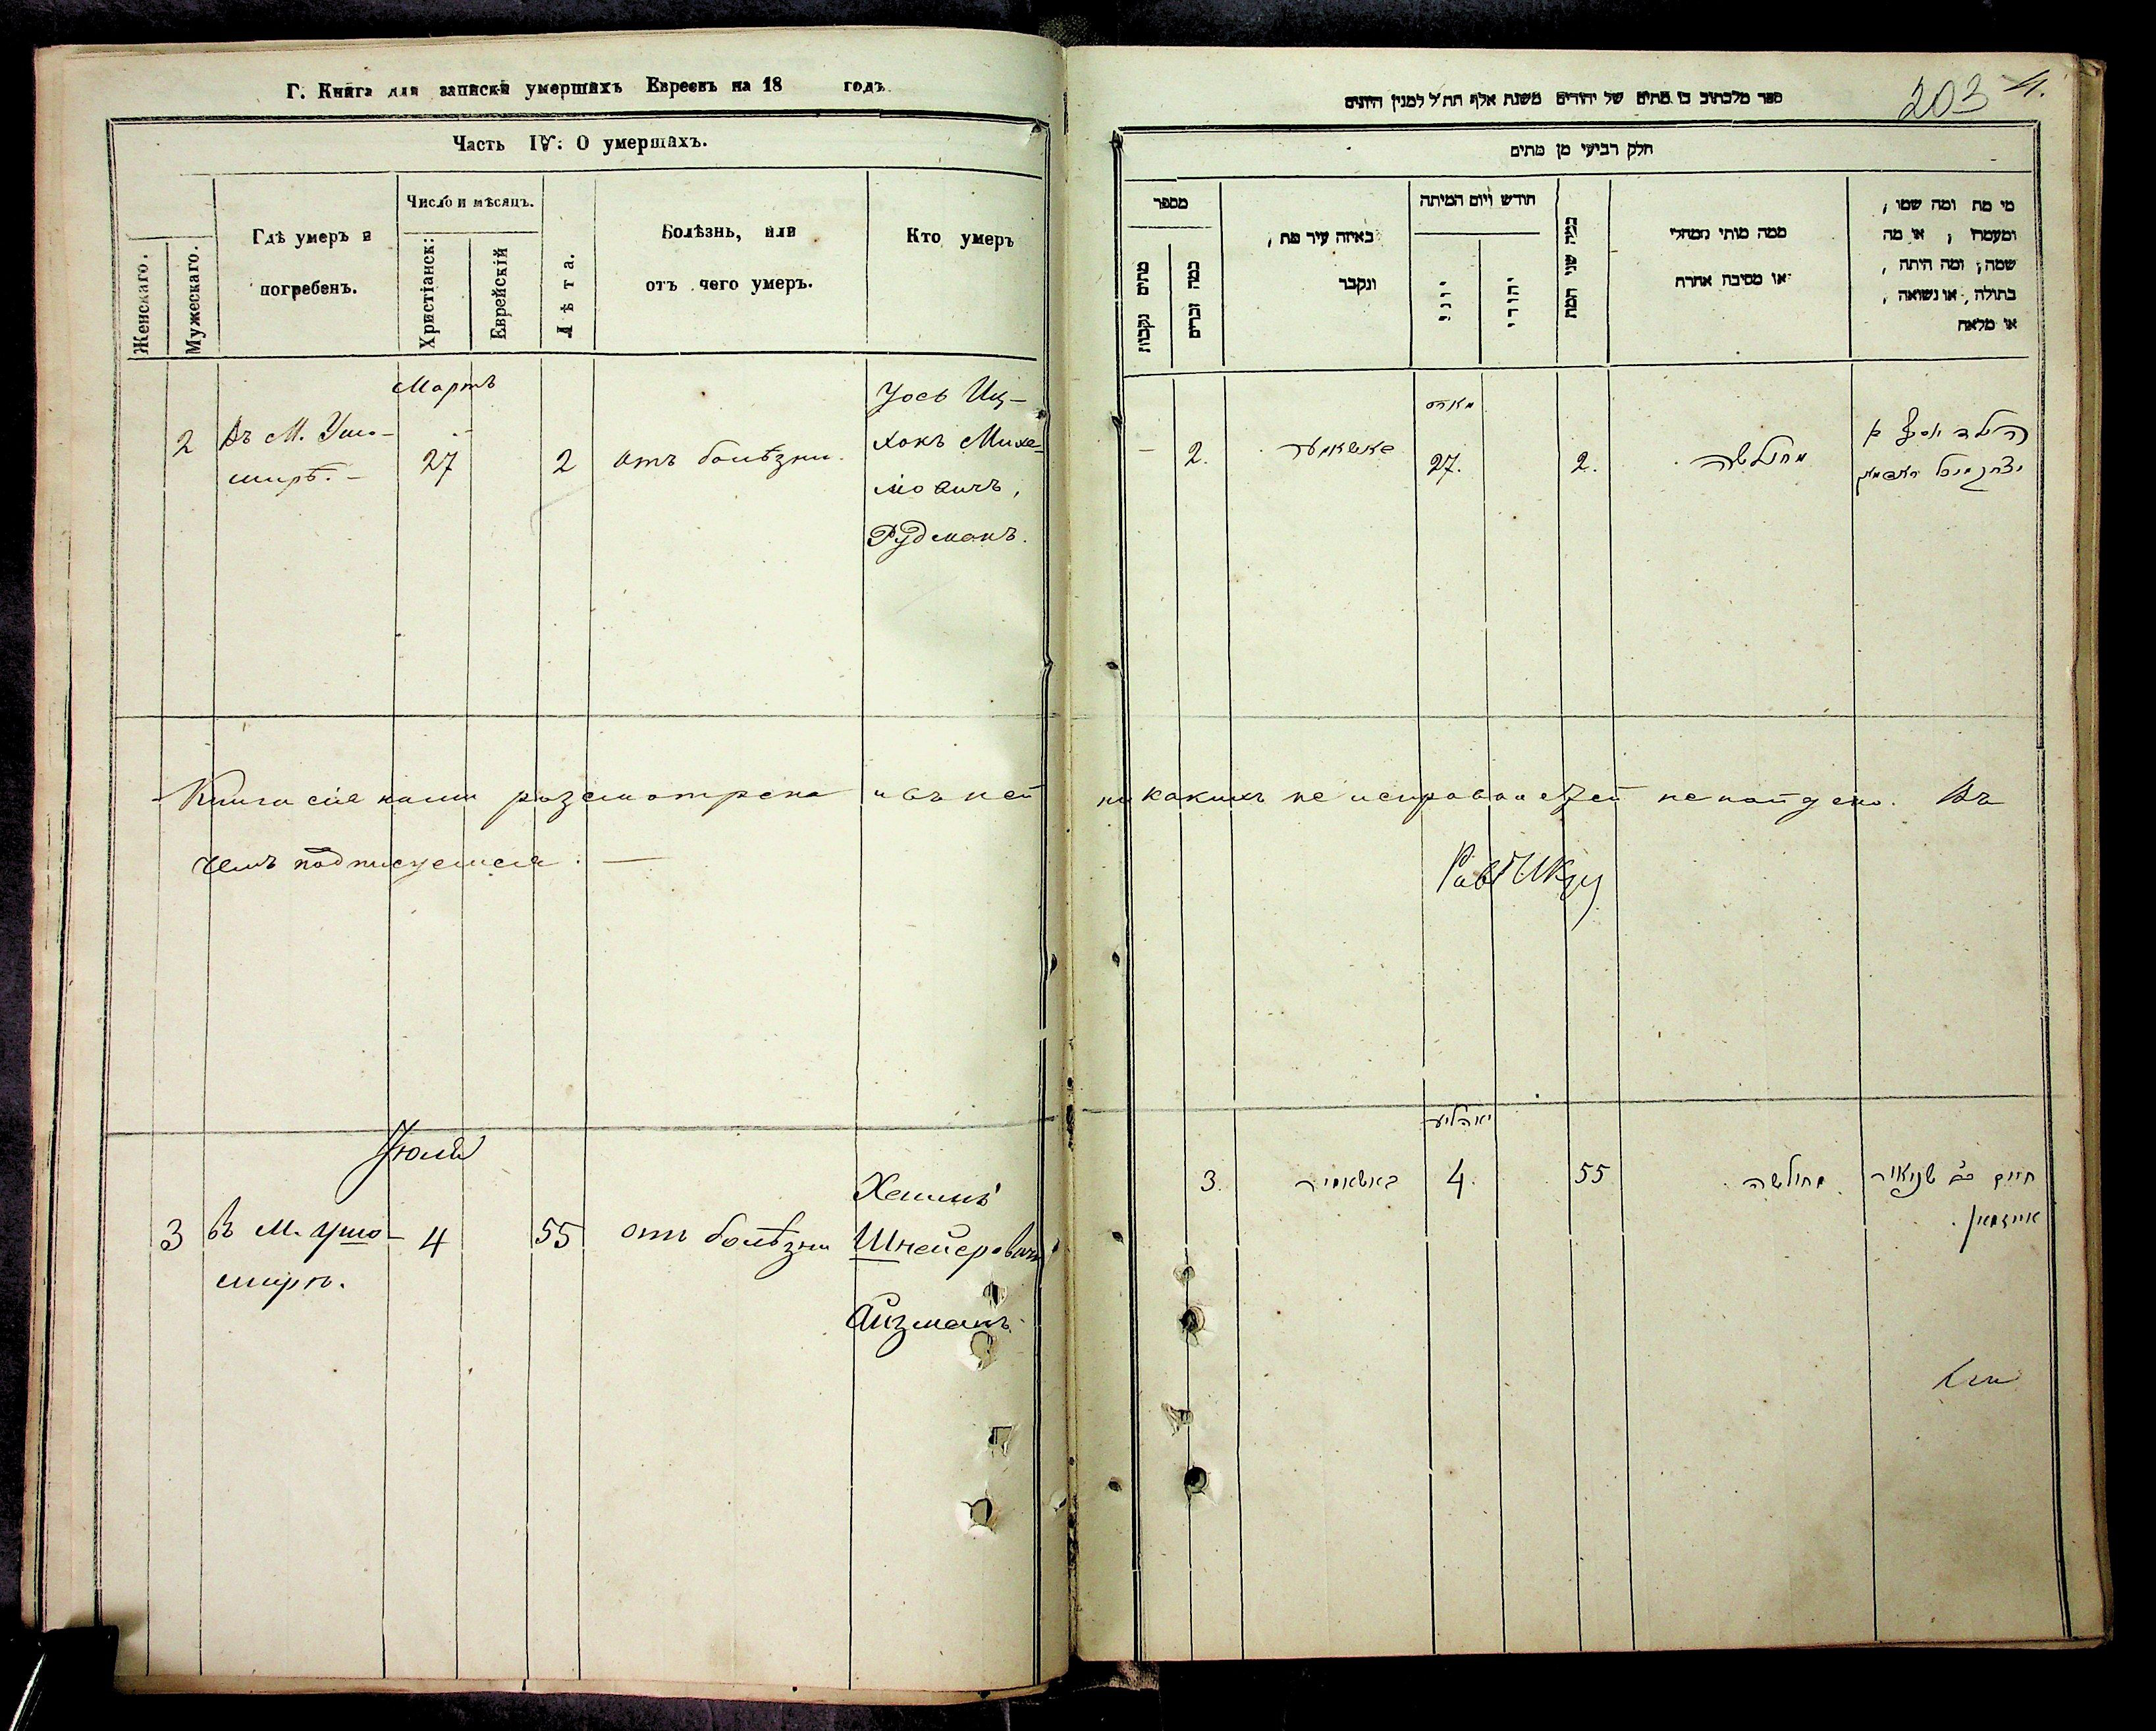 Г. Книга для записки умершихъ Евреевъ на 18 годъ
Часть IV: О умершихъ.
Женскаго.
Мужескаго.
Гдѣ умеръ и
погребенъ.
Число и мѣсяцъ.
Христіанск:
Еврейскій
Лѣта.
Болѣзнь, или
отъ чего умеръ.
Кто умеръ
Мартъ
2 Въ М. Ушо-
мирѣ.
27
2
отъ болѣзни.
Іось Иц-
хокъ Михе-
левичъ,
Рудманъ.
Книга сія нами разсмотрена и въ ней
чемъ подписуемся.
Іюля
3 Въ М. Ушо-
мирѣ.
4
55
отъ болѣзни
Хаимъ
Шнееровичъ
Айзманъ.
203 4.
ספר מלכתוב בו מתים של יהודים משנת אלף תת״ל למנין היונים
חלק רביעי מן מתים
מספר
מתים נקבות
כמה זכרים
באיזה עיר מת,
ונקבר
חודש ויום המיתה
יוני
יהודי
כמה שני המת
ממה מותי ממחלי
או מסיבת אחרת
מי מת ומה שמו,
ומעמדו, או מה
שמה; ומה היתה,
בתולה, או נשואה,
או מלאה
מארט
2.
27.
2.
מחולשה
никакихъ не исправностей не найдено. Въ
יאהליע
3.
4.
55
מחולשה
חיים בר שניאור
אייזמאן.